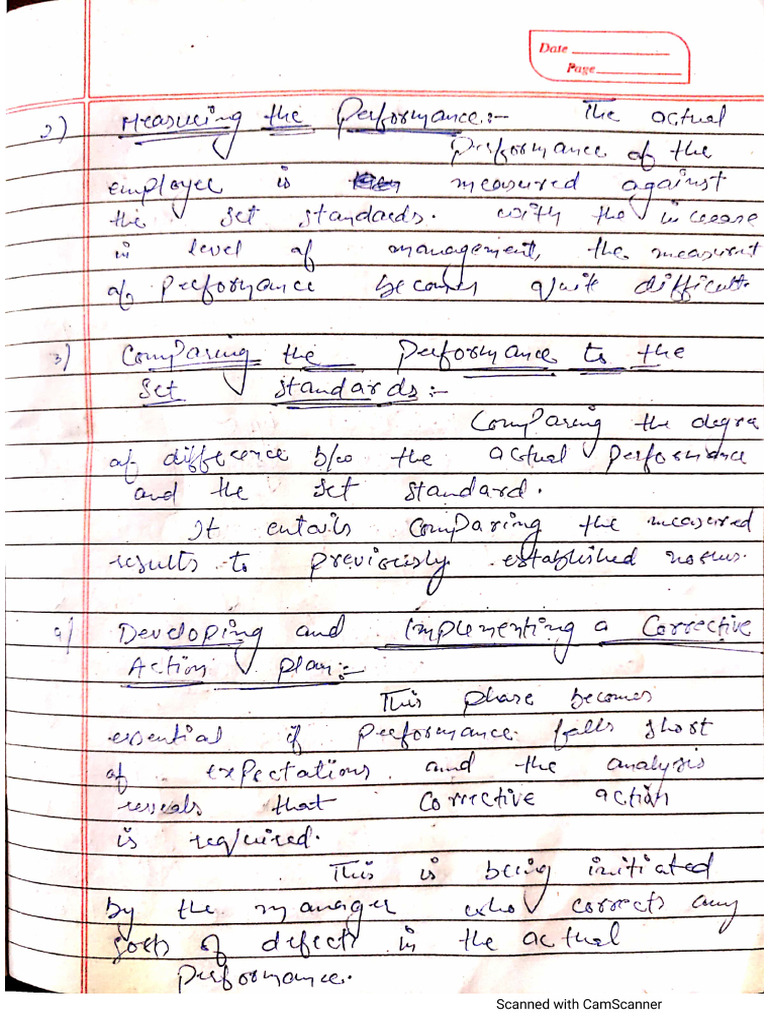 Date
Page
2) Measuring the Performance:- The actual
Performance of the
employee is measured against
the set standards. with the increase
in level of management, the measurment
of Performance becomes quite difficult.
3) Comparing the Performance to the
Set standards:-
Comparing the degree
of difference b/w the actual Performance
and the set standard.
It entails comparing the measured
results to previously established norms.
4) Developing and implementing a Corrective
Action plan:-
This phase becomes
essential if Performance falls short
of expectations and the analysis
reveals that corrective action
is required.
This is being initiated
by the manager who corrects any
sorts of defects in the actual
Performance.
Scanned with CamScanner